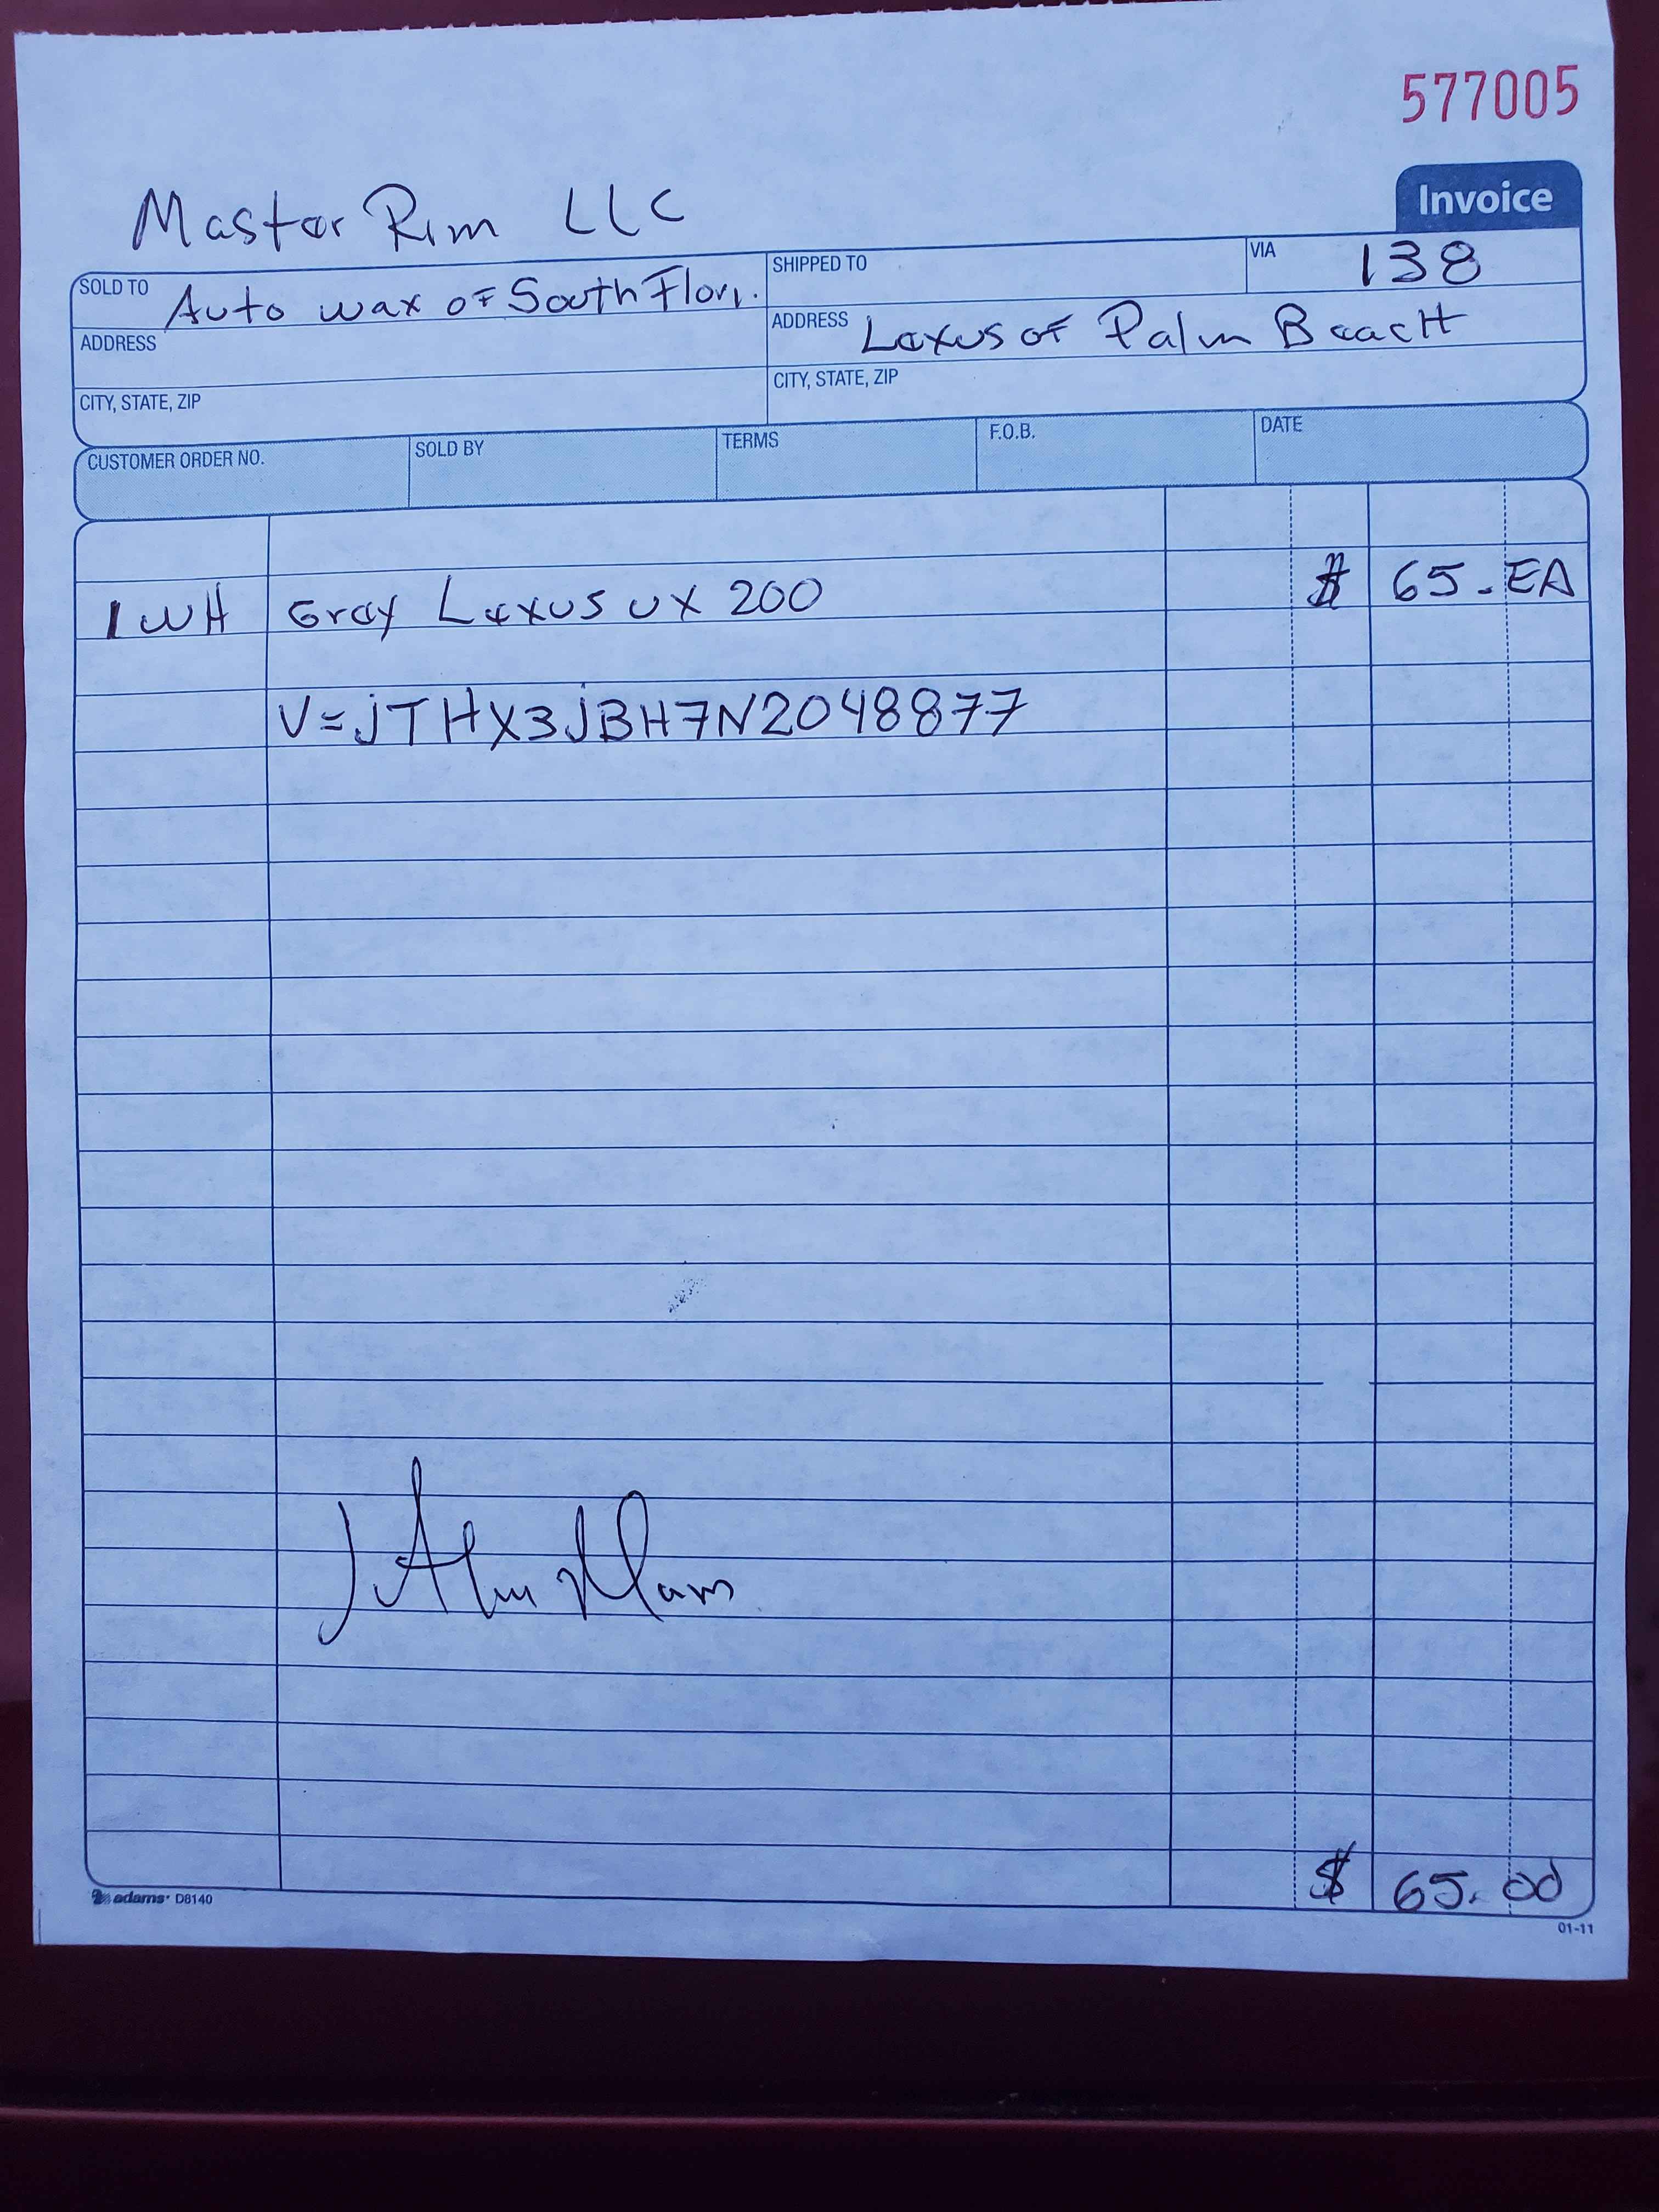 577005
Master Rim LLC
Invoice
SOLD TO Auto wax of South Flori.
SHIPPED TO
VIA 138
ADDRESS
ADDRESS Lexus of Palm BeacH
CITY, STATE, ZIP
CITY, STATE, ZIP
CUSTOMER ORDER NO. SOLD BY TERMS F.O.B. DATE
1 WH Gray Lexus UX 200 $ 65.- EA
V=jTHX3jBH7N2048877
$ 65.00
adams D8140
01-11